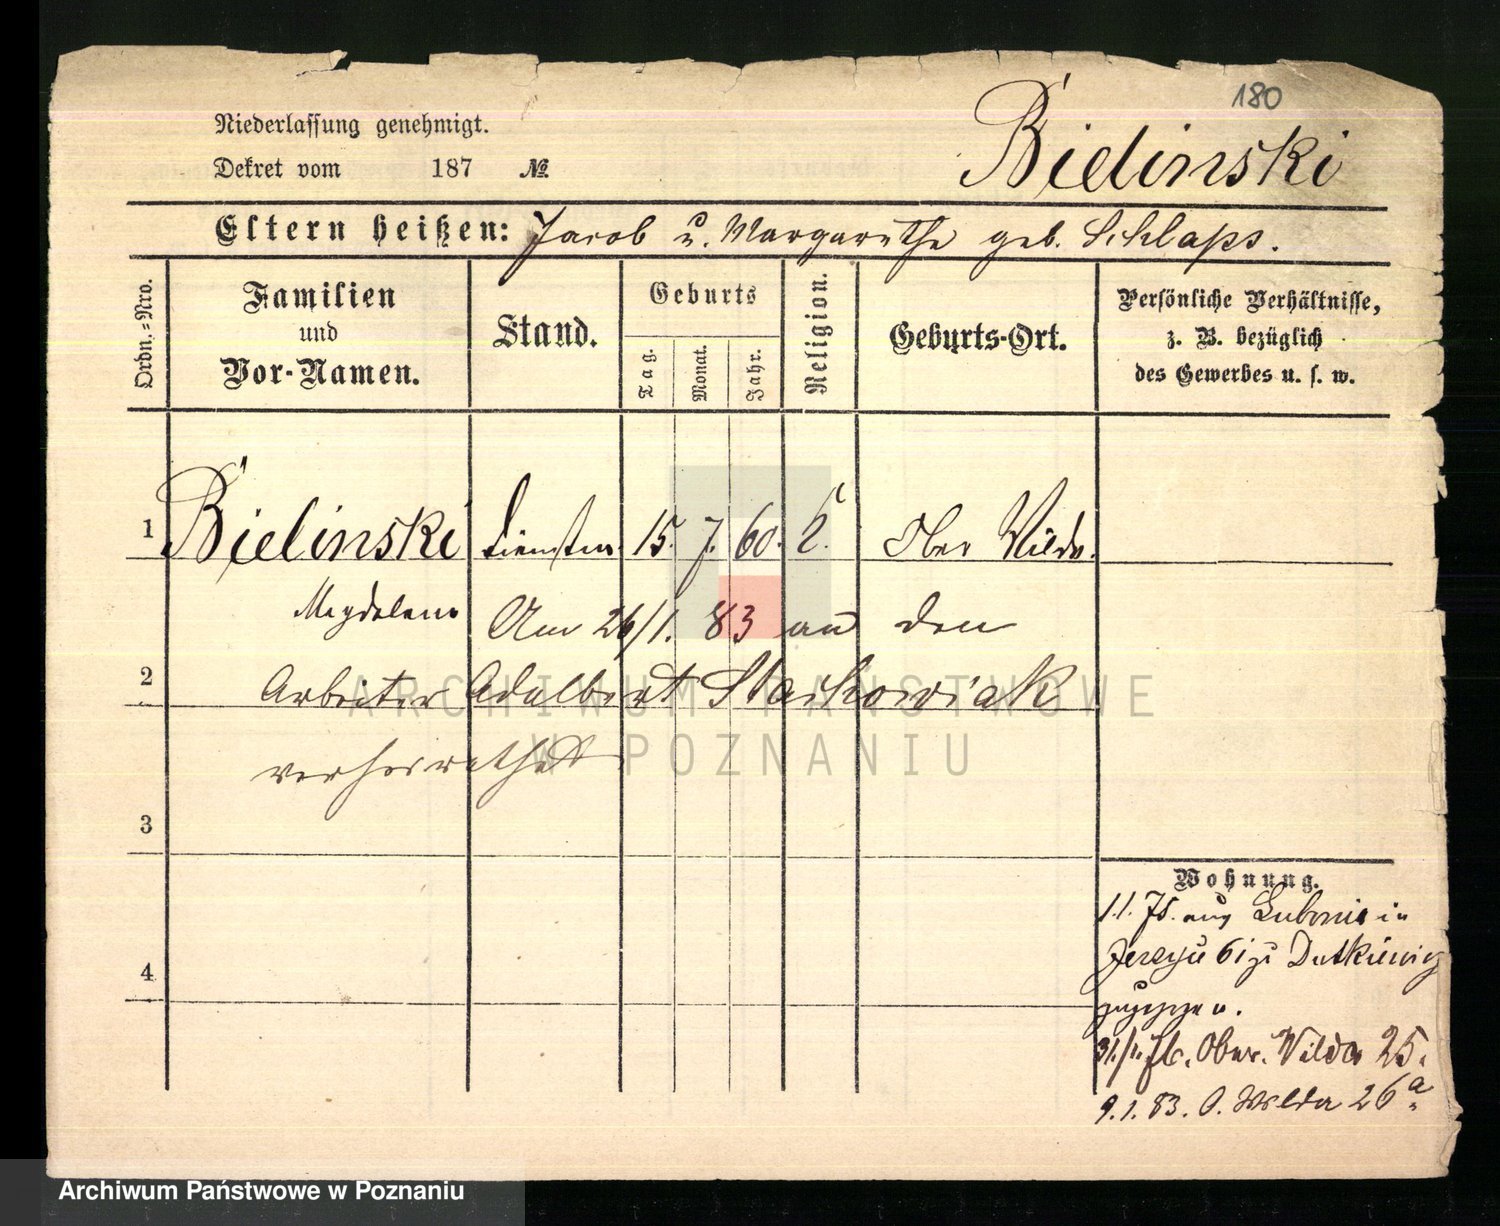 180
Niederlassung genehmigt.
Dekret vom 187 №
Bielinski
Eltern heißen: Jacob u. Margarethe geb. Schlaps.
Ordn.-Nro.
Familien
und
Vor-Namen.
Stand.
Geburts
Tag.
Monat.
Jahr.
Religion.
Geburts-Ort.
Persönliche Verhältnisse,
z. B. bezüglich
des Gewerbes u. s. w.
1 Bielinski 15. 7. 60. Ober Wilda.
Magdalena Am 26/1. 83 an den
2 Arbeiter Adalbert Stachowiak
verheirathet
3
4
Wohnung.
1.1. 75. aus in
Jerzyce 61 zu Dutkiewicz
zugezogen.
Ober. Wilda 25.
9.1.83. O. Wilda 26a
ARCHIWUM PAŃSTWOWE
W POZNANIU
Archiwum Państwowe w Poznaniu